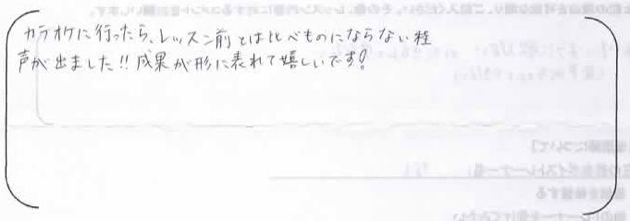 カラオケに行ったら、レッスン前とは比べものにならない程
声が出ました!!成果が形に表れて嬉しいです!